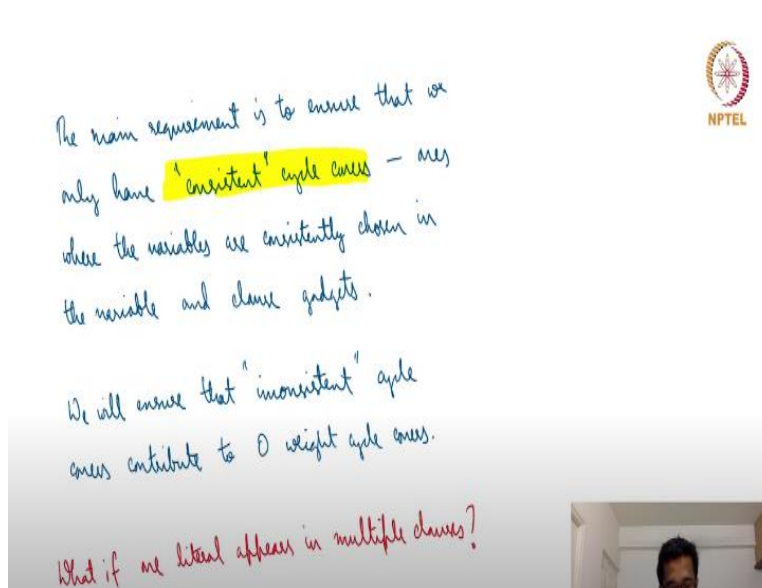 The main requirement is to ensure that we
only have "consistent" cycle covers – ones
where the variables are consistently chosen in
the variable and clause gadgets.
We will ensure that "inconsistent" cycle
covers contribute to 0 weight cycle covers.
What if one literal appears in multiple clauses?
NPTEL